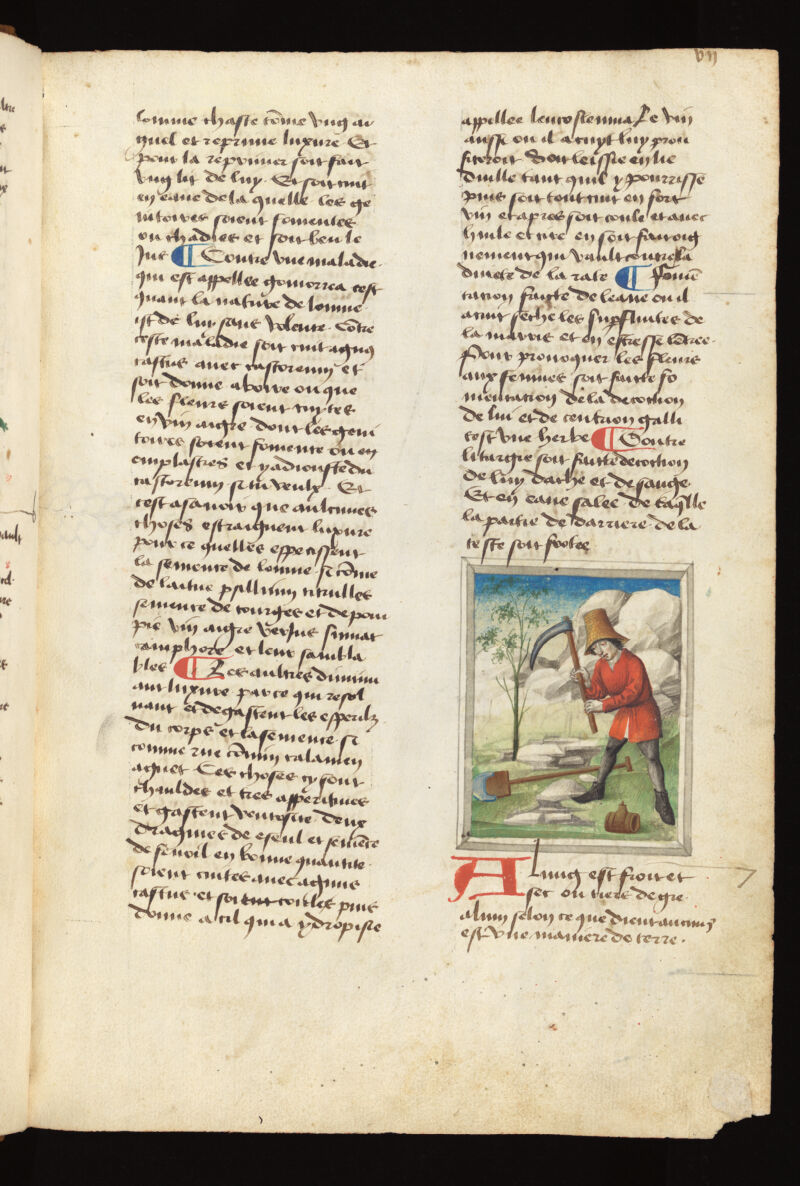 vii
lomme chaste come ung ai
gniel et reprime luxure Et
pour la reprimer soit fait
ung lit de luy. Et soit cuit
en eaue de la quelle les ge
nitoires soient fomentes
ou chadies et soit beu le
jus ¶ Contre une maladie
qui est appellee gomorrea cest
quant la nature de lomme
ist de lui sans volente. Cotre
ceste maladie soit cuit agnus
castus avec castoreum et
soit donne a boire ou que
les fleurs soient cuytes
en vin aigre dont les geni
toires soient fomente ou en
emplastres et y adiouste du
castoreum se tu veulx. Et
cest asavoir que aulcunes
choses estraignent luxure
pour ce quelles espessissent
la semence de lomme. si come
de laitue psillium citrulles
semence de courges et de pour
pie vin aigre verjus sumac
camphore et leurs sambla
bles ¶ Les aultres diminu
ent luxure par ce qui resol
vent et degastent les esperilz
du corps et la semence si
comme rue comin calamen
agnet Ces choses cy sont
chauldes et tres apperitives
et gastent ventosite. deux
dragmes de eseul et semece
de fenoil en bonne quantite
soient cuites avec agnus
castus. et soient coules puis
donne a cil qui a ydropisie
appellee leucoflemma Le vin
aussi ou il a cuyt luy prou
fiteroit doit leissie en lie
duille tant quil y pourrisse
puis soit tout cuit en fort
vin et apres soit coule et avec
huile et cire en soit fait oig
nement qui vault contre la
durete de la rate ¶ Fomen
tacion faicte de leaue ou il
a cuit seche les supfluites de
la marris et en estresse lentree.
Pour provoquer les fleurs
aux femmes soit faitte fo
mentacion de la decoction
de lui et de centrum galli
cest une herbe ¶ Contre
litargie soit faitte decoction
de luy dache et de sauge
Et en eaue salee de taqlle
la partie de darriere de la
teste soit frotee
Alung est froit et
sec ou tiers degre.
alun selon ce que dient aucuns
est une maniere de terre.